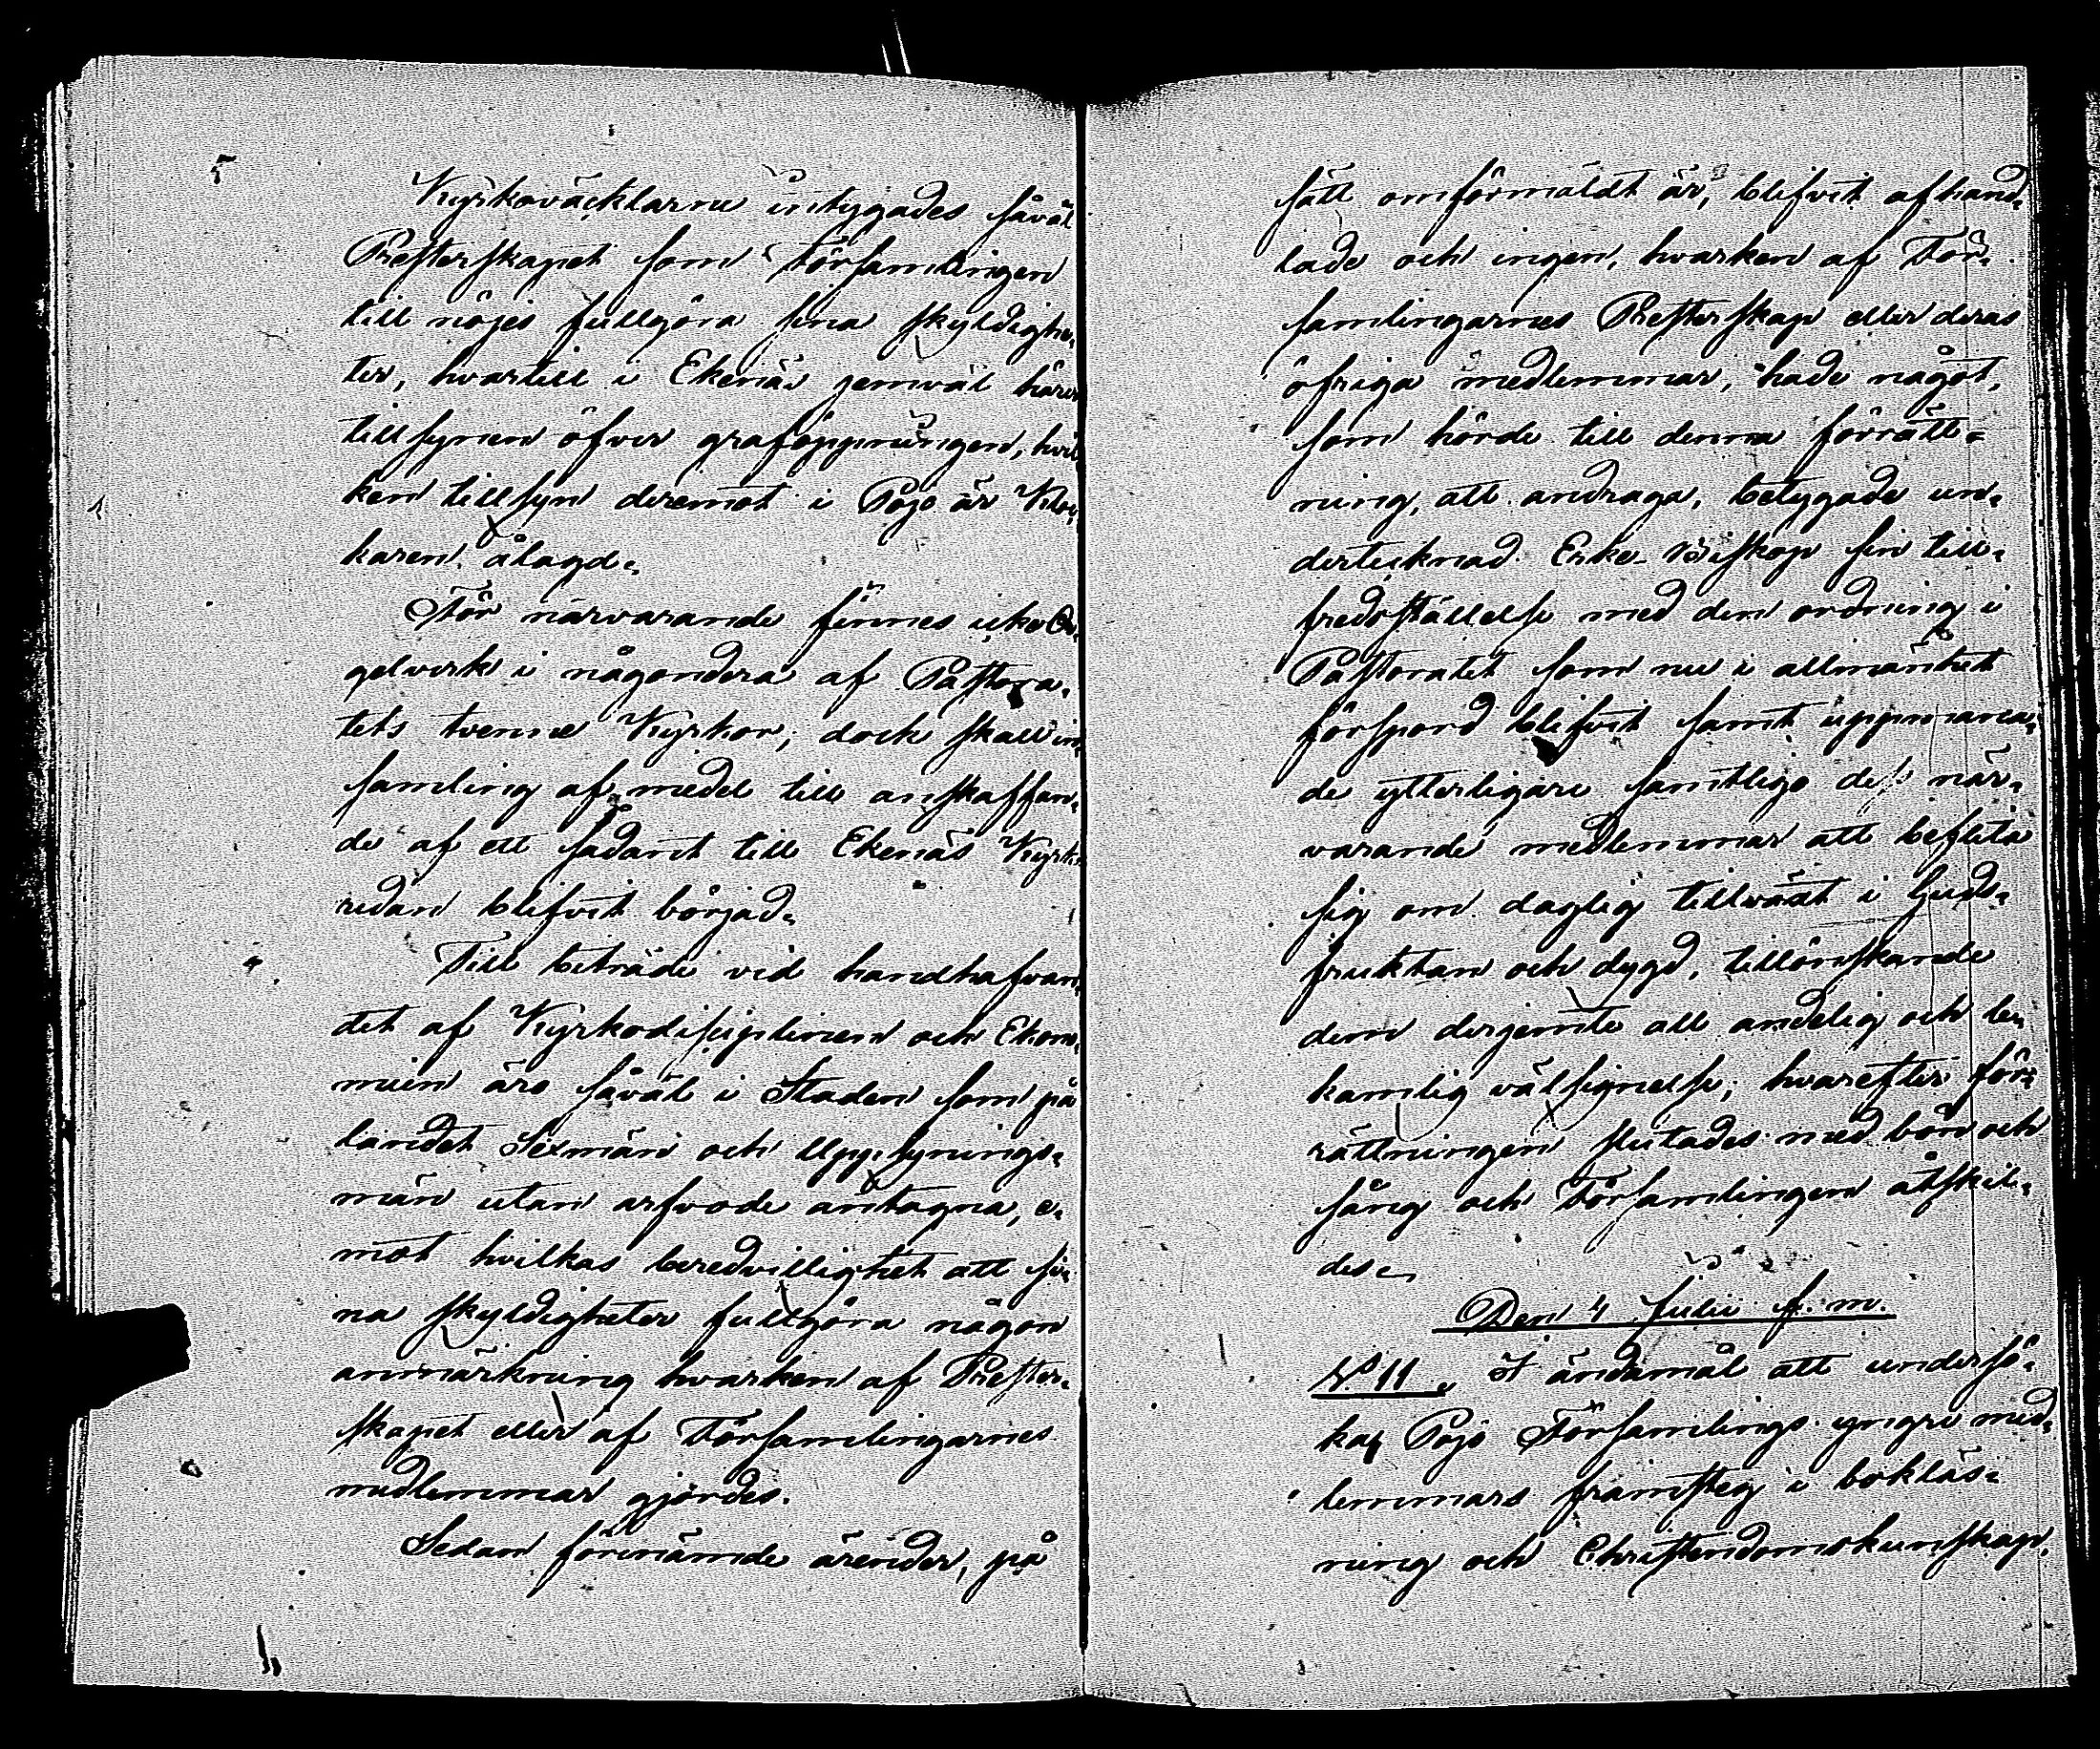 Kyrkoväcktarne intygades såväl
Presterskapet som Församlingen
till nöjes fullgöra sina skyldighe-
ter, hvartill i Ekenäs jemväl hörer
tillsynen öfver graföppningen, hvil
ken tillsyn deremot i Pojo är Kloc-
karen ålagd.
För närvarande finnes icke Or-
gelverk i någondera af Pastora-
tets tvenne Kyrkor; dock skall in-
samling af medel till anskaffan-
de af ett sådant till Ekenäs Kyrka
redan blifvit börjad.
Till biträde vid handhafvan-
det af Kyrkodisciplinen och Ekono-
mien äro såväl i Staden som på
landet Sexmän och Uppsynings-
män utan arfvode antagna, e-
mot hvilkas beredvillighet att si-
na skyldigheter fullgöra någon
anmärkning hvarken af Prester-
skapet eller af Församlingarnes
medlemmar gjordes.
Sedan förenämde ärender, på
sätt omförmäldt är, blifvit afhand-
lade och ingen, hvarken af För-
samlingarnes Presterskap eller deras
öfriga medlemmar, hade något,
som hörde till denna förrätt-
ning, att andraga, betygade un-
dertecknad Erke-Biskop sin till-
fredsställelse med den ordning i
Pastoratet som nu i allmänhet
förspord blifvit samt uppmana-
de ytterligare samtlige dess när-
varande medlemmar att beflita
sig om daglig tillväxt i Guds-
fruktan och dygd, tillönskande
dem derjemte all andelig och le-
kamlig välsignelse; hvarefter för-
rättningen slutades med bön och
sång och Församlingen åtskil-
des.
Den 4 Julii f. m.
N:o 11. I ändamål att undersö-
ka Pojo Församlings yngre med-
lemmars framsteg i bokläs-
ning och Christendomskunskap,